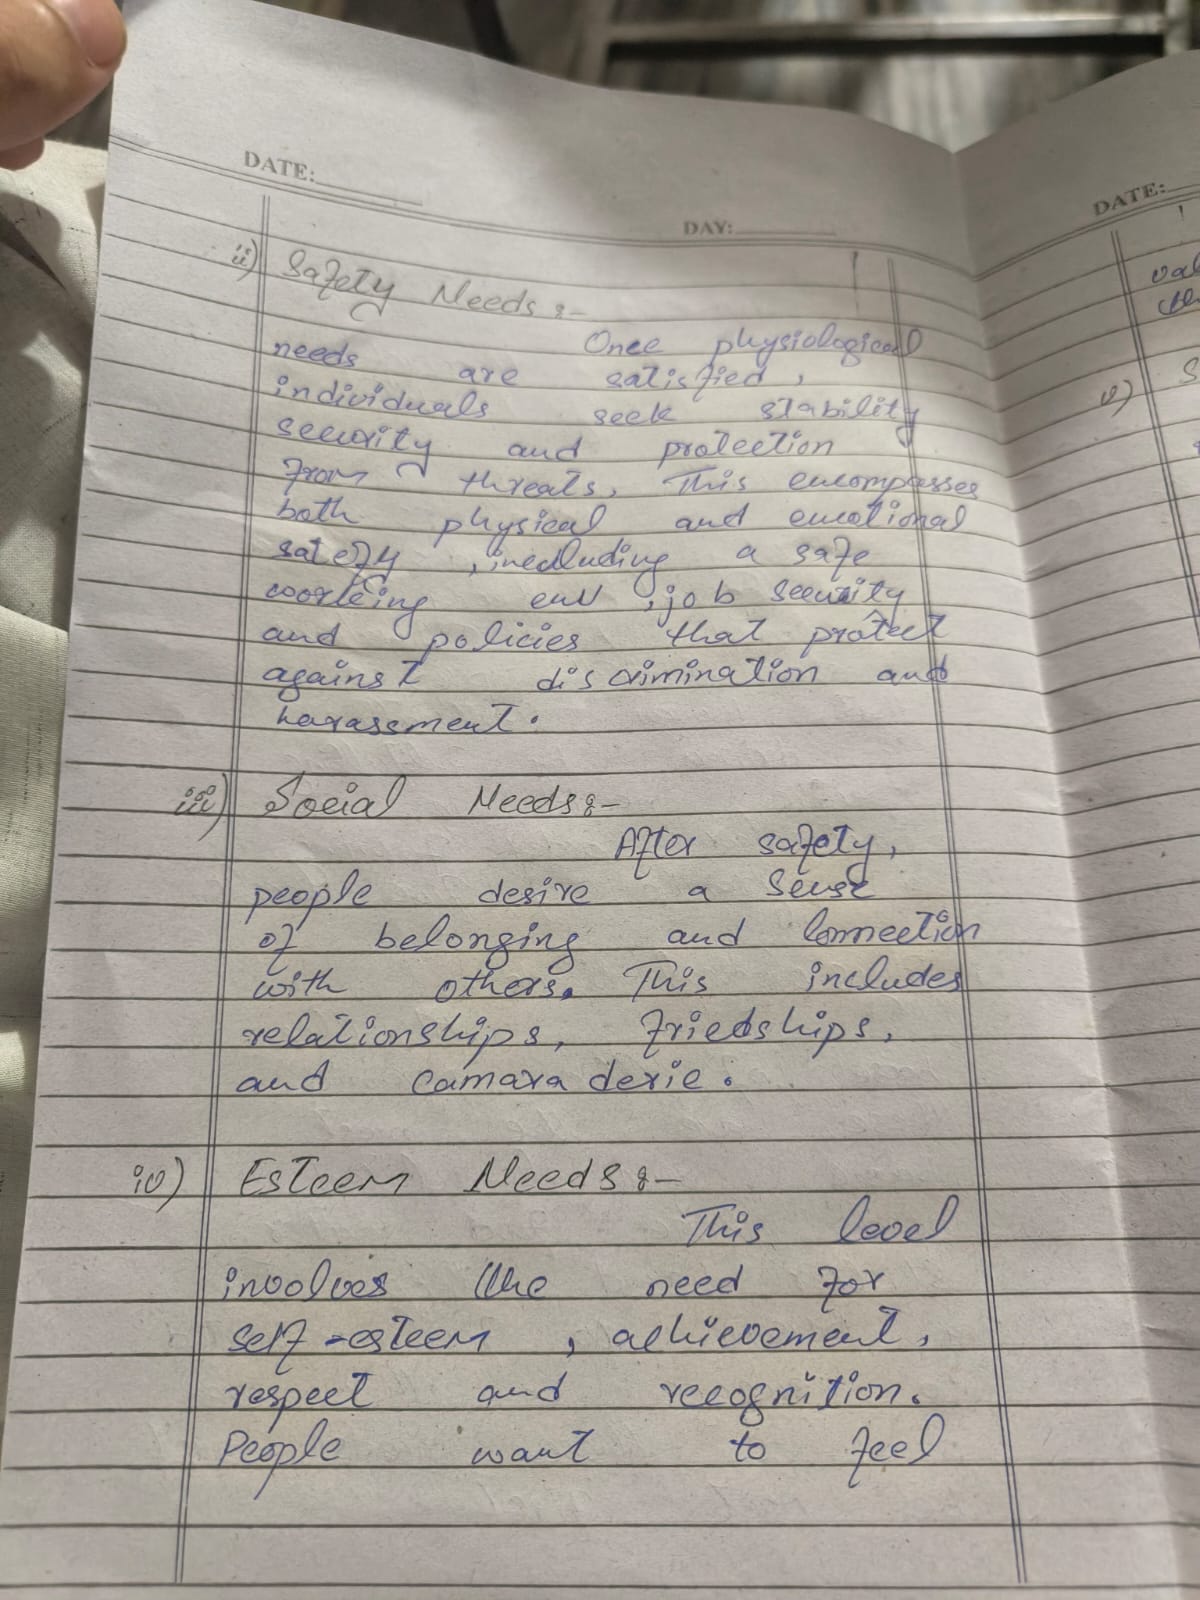 DATE:
DAY:
ii) Safety Needs :-
Once physiological
needs are satisfied,
individuals seek stability
security and protection
from threats, This encompasses
both physical and emotional
safety, including a safe
working env, job security
and policies that protect
against discrimination and
harassment.
iii) Social Needs :-
After safety,
people desire a sense
of belonging and connection
with others. This includes
relationships, friedships,
and camaraderie.
iv) Esteem Needs :-
This level
involves the need for
self-esteem, achievement,
respect and recognition.
People want to feel
DATE:
v)